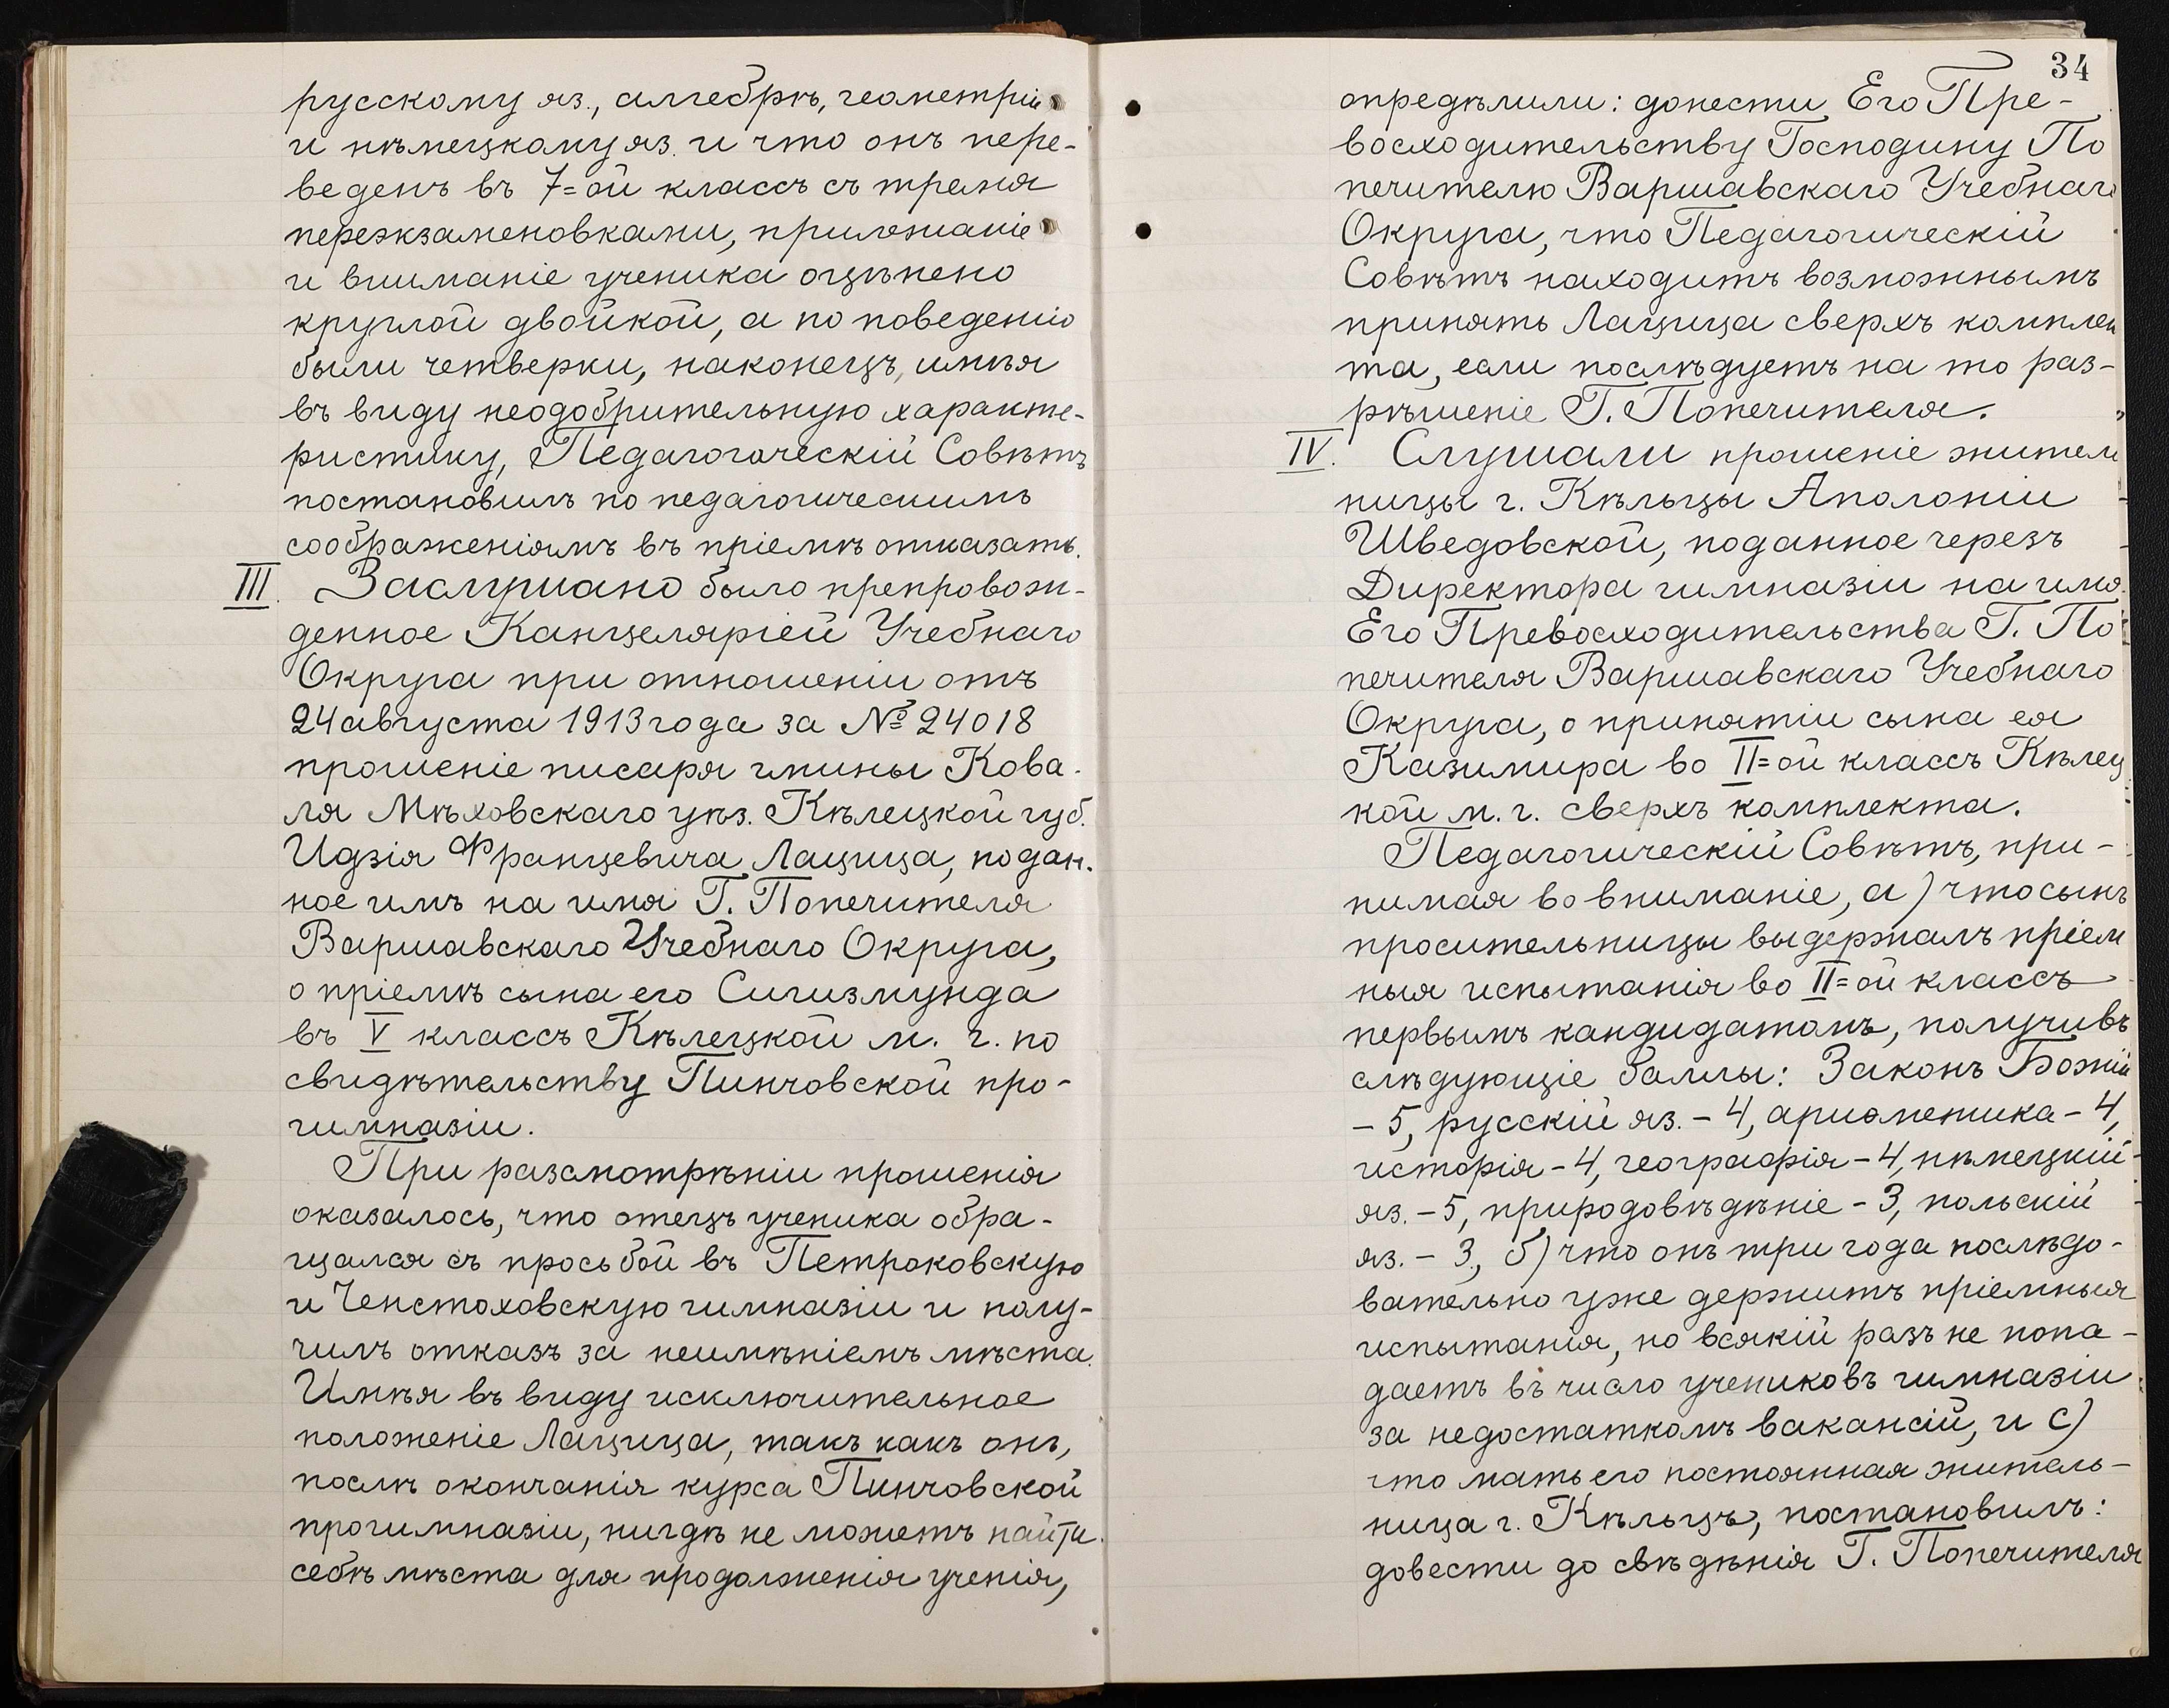 русскому яз., алгебрѣ, геометріи
и нѣмецкому яз. и что онъ пере-
веденъ въ 7=ой классъ съ тремя
переэкзаменовками, прилежаніе
и вниманіе ученика оцѣнено
круглой двойкой, а по поведенію
были четверки, наконецъ, имѣя
въ виду неодобрительную характе-
ристику, Педагогическій Совѣтъ
постановилъ по педагогическимъ
соображеніямъ въ пріемѣ отказать.
III. Заслушано было препровож-
денное Канцеляріей Учебнаго
Округа при отношеніи отъ
24 августа 1913 года за № 24018
прошеніе писаря гмины Кова-
ля Мѣховскаго уѣз. Кѣлецкой губ.
Идзія Францевича Лацица, подан-
ное имъ на имя Г. Попечителя
Варшавскаго Учебнаго Округа,
о пріемѣ сына его Сигизмунда
въ V классъ Кѣлецкой м. г. по
свидѣтельству Пинчовской про-
гимназіи.
При разсмотрѣніи прошенія
оказалось, что отецъ ученика обра-
щался съ просьбой въ Петроковскую
и Ченстоховскую гимназіи и полу-
чилъ отказъ за неимѣніемъ мѣста.
Имѣя въ виду исключительное
положеніе Лацица, такъ какъ онъ,
послѣ окончанія курса Пинчовской
прогимназіи, нигдѣ не можетъ найти
себѣ мѣста для продолженія ученія,
34
опредѣлили: донести Его Пре-
восходительству Господину По
печителю Варшавскаго Учебнаго
Округа, что Педагогическій
Совѣтъ находитъ возможнымъ
принять Лацица сверхъ комплек
та, если послѣдуетъ на то раз-
рѣшеніе Г. Попечителя.
IV. Слушали прошеніе жител
ницы г. Кѣльцы Аполоніи
Шведовской, поданное черезъ
Директора гимназіи на имя
Его Превосходительства Г. По
печителя Варшавскаго Учебнаго
Округа, о принятіи сына ея
Казимира во II=ой классъ Кѣлец
кой м. г. сверхъ комплекта.
Педагогическій Совѣтъ, при-
нимая во вниманіе, а) что сынъ
просительницы выдержалъ пріем
ныя испытанія во II=ой классъ
первымъ кандидатомъ, получивъ
слѣдующіе баллы: Законъ Божій
- 5, русскій яз. - 4, ариѳметика - 4,
исторія - 4, географія - 4, нѣмецкій
яз. - 5, природовѣдѣніе - 3, польскій
яз. - 3, б) что онъ три года послѣдо-
вательно уже держитъ пріемныя
испытанія, но всякій разъ не попа-
даетъ въ число учениковъ гимназіи
за недостаткомъ вакансій, и с)
что мать его постоянная житель-
ница г. Кѣльцъ, постановилъ:
довести до свѣдѣнія Г. Попечителя